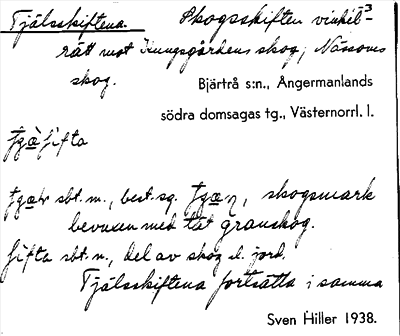 Tjälsskiftena. Skogsskiften vinkel-³
rätt mot Kungsgårdens skog; Nässoms
skog.
Bjärtrå s:n., Ångermanlands
södra domsagas tg., Västernorrl. l.
sbt. m., best. sg. skogsmark
bevuxen med tät granskog.
sbt. n., del av skog el. jord.
Tjälsskiftena fortsätta i samma
Sven Hiller 1938.